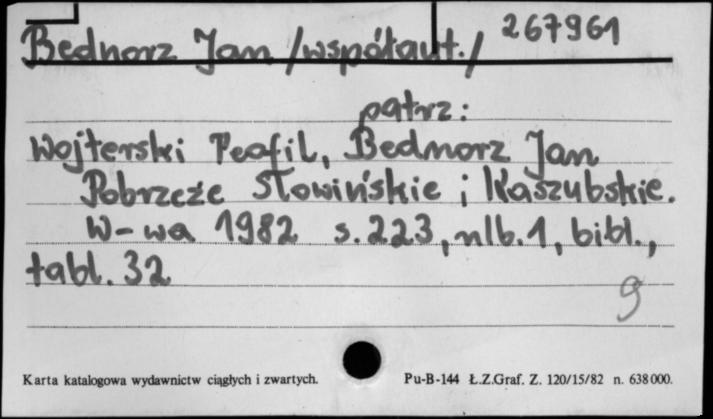 Bednorz Jan /współaut./ 267961
patrz:
Wojterski Teofil, Bednorz Jan
Pobrzeże Słowińskie i Kaszubskie.
W-wa 1982 s. 223, nlb. 1, bibl.,
tabl. 32
9
Karta katalogowa wydawnictw ciągłych i zwartych. Pu-B-144 Ł.Z.Graf. Z. 120/15/82 n. 638000.